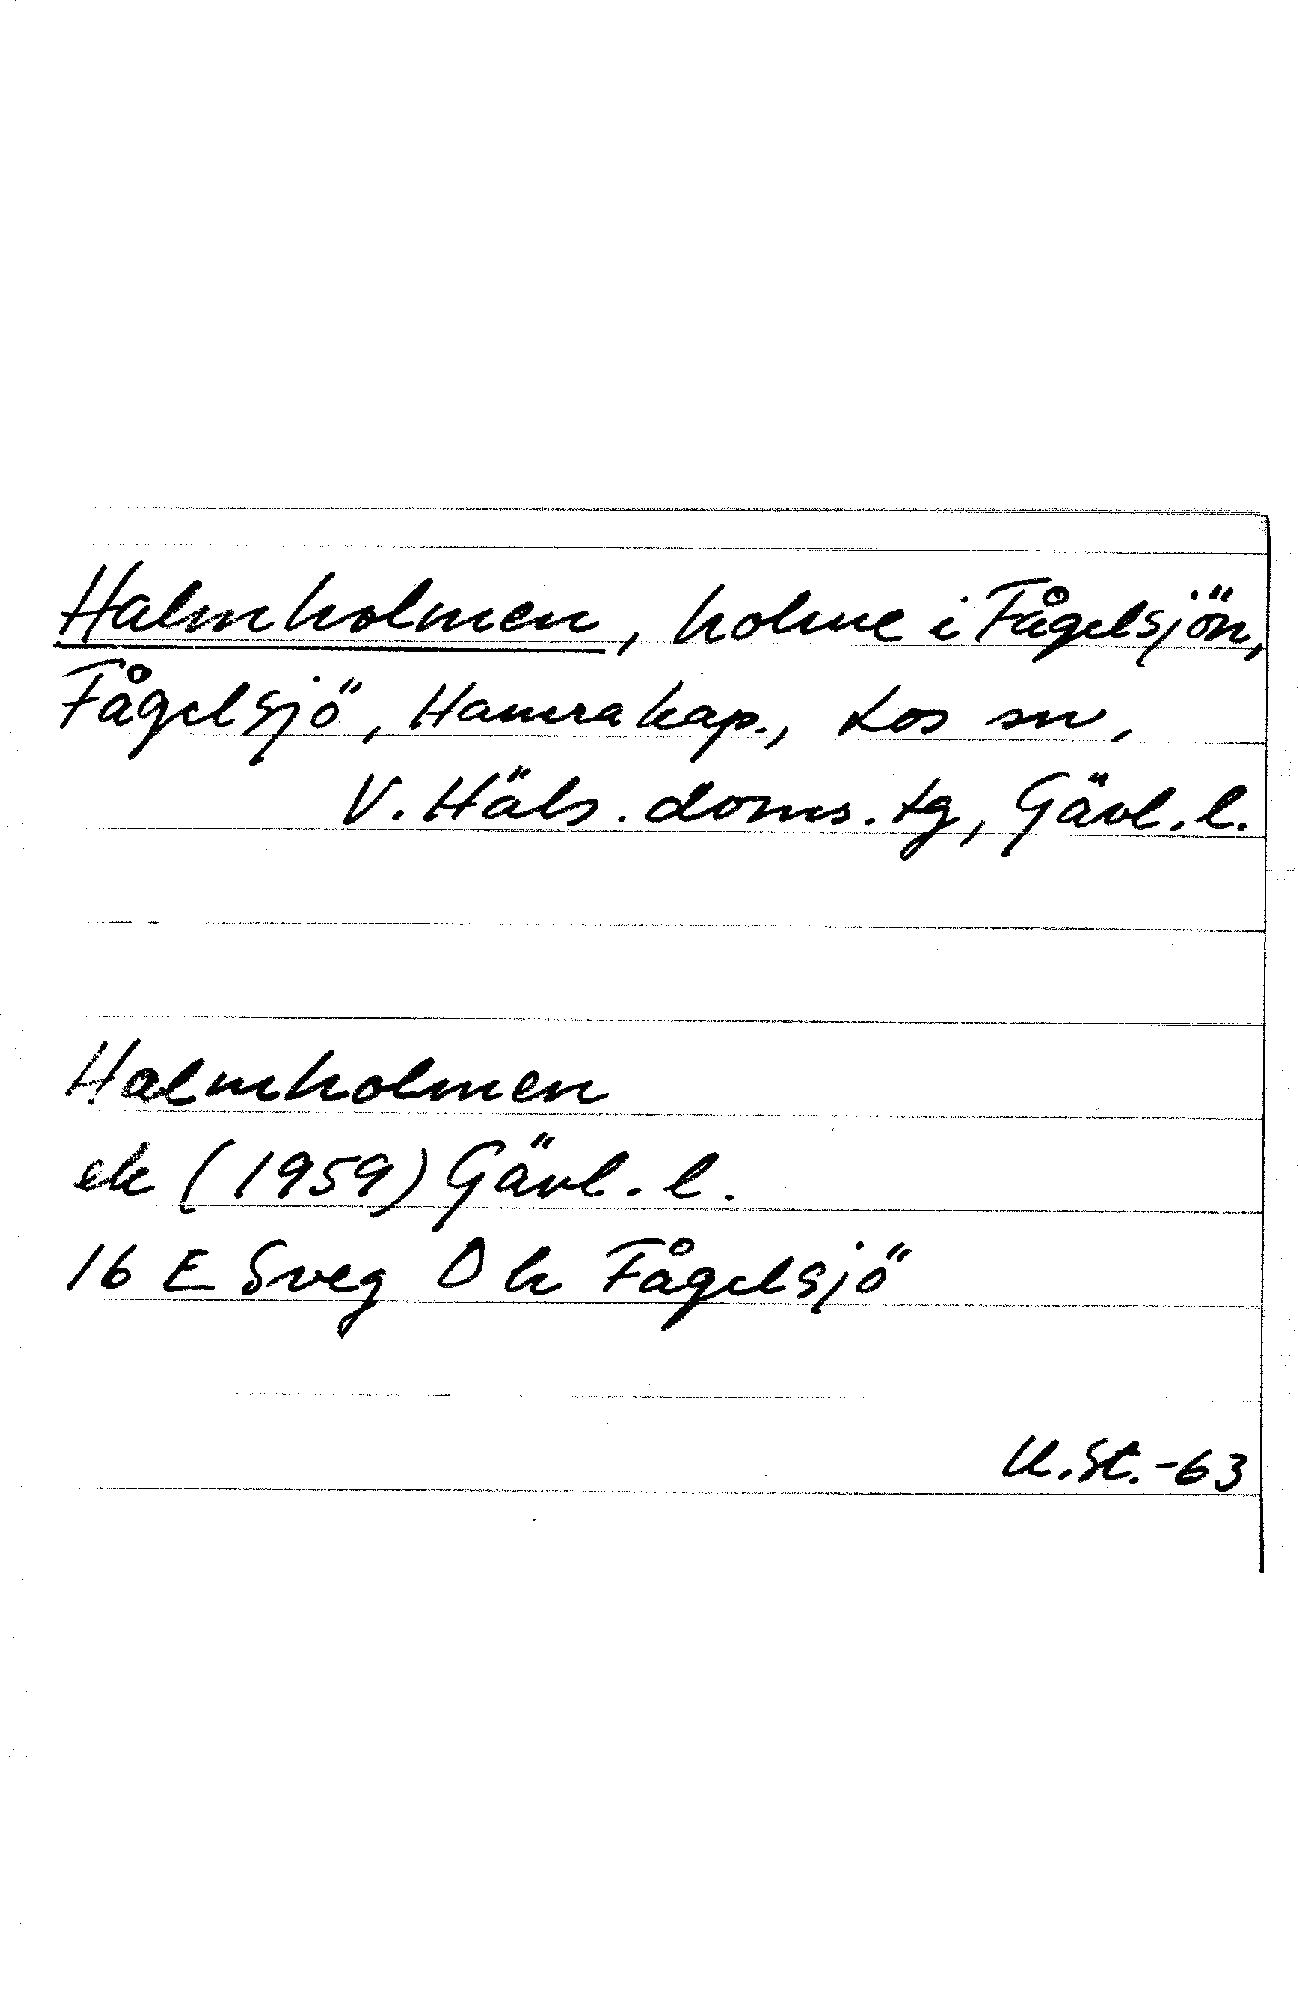 Halmholmen, holme i Fågelsjön,
Fågelsjö, Hamra kap., Los sn,
V. Häls. doms. tg, Gävl. l.
Halmholmen
ek (1959) Gävl. l.
16 E Sveg 0 h Fågelsjö
U. St. -63